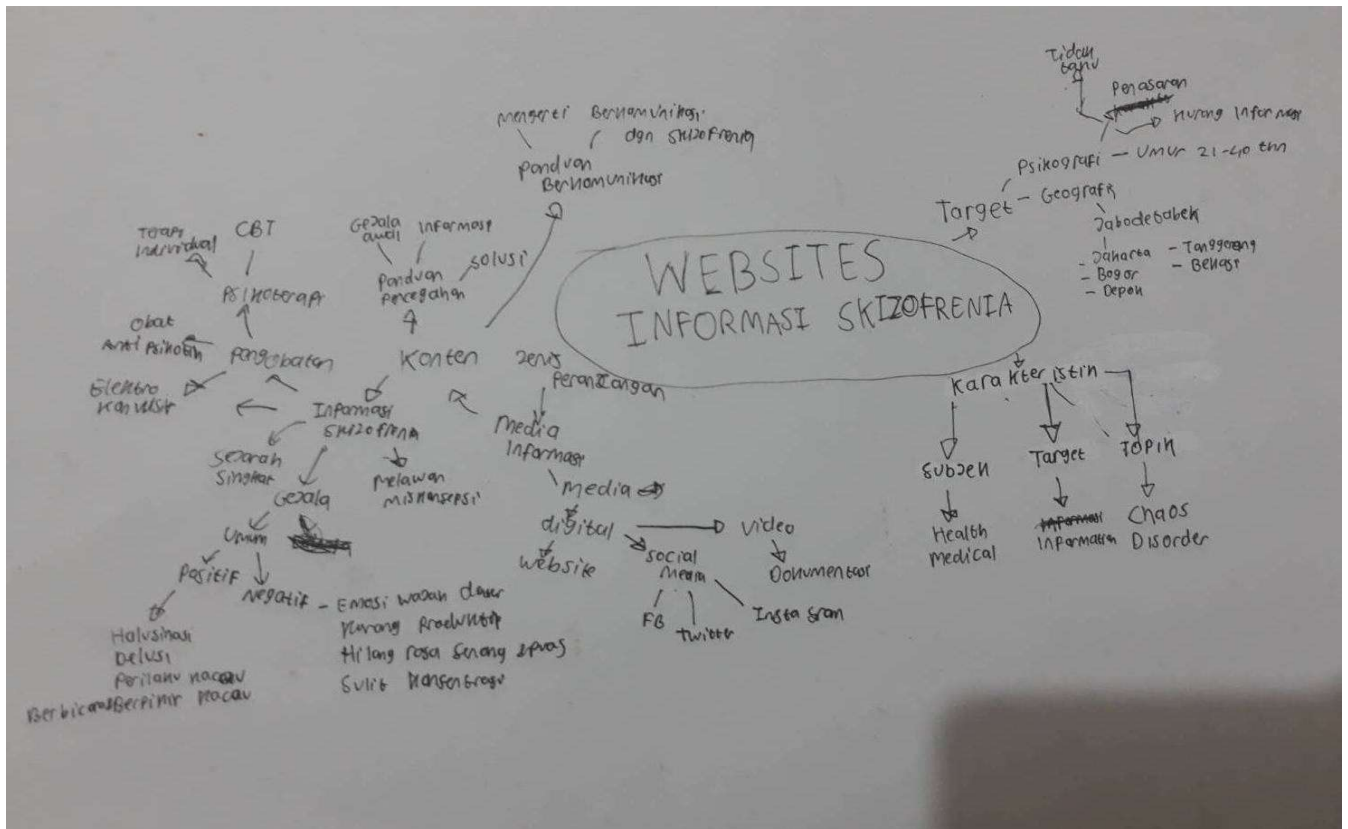 WEBSITES
INFORMASI SKIZOFRENIA
Target
Psikografi - Umur 21-40 thn
Penasaran
Kurang Informasi
Tidak
Geografi
Jabodetabek
- Jakarta
- Bogor
- Depok
- Tanggerang
- Bekasi
Karakteristik
Subjek
Health
Medical
Target
Information
Topik
Chaos
Disorder
Jenis
Perancangan
Media
Informasi
Media
digital
Website
Social
Media
FB
Twitter
Instagram
Video
Dokumenter
Konten
Panduan
Berkomunikasi
Mengerti
Berkomunikasi
dgn Skizofrenia
Panduan
Pencegahan
Gejala
Informasi
Solusi
Informasi
Skizofrenia
Pengobatan
Psikoterapi
Terapi
Individual
CBT
Obat
Anti Psikotik
Elektro
Konvulsif
Sejarah
Singkat
Melawan
miskonsepsi
Gejala
Umum
Positif
Halusinasi
Delusi
Perilaku kacau
Berbicara &Berpikir kacau
Negatif - Emosi
Kurang Produktif
Hilang rasa senang &puas
Sulit Konsentrasi